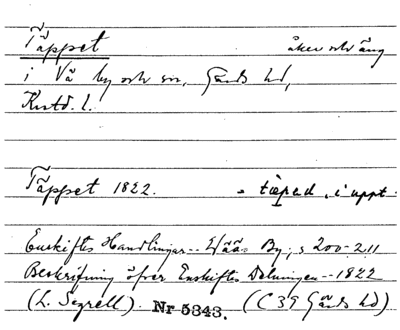 Täppet åker och äng
i Vä by och sn, Gärds hd,
Krstd. l.
Täppet 1822. tæped, i uppt.
Enskiftes Handlingar -- Wää By; s 200-211
Beskrifning öfver Enskiftes Delningen -- 1822
(L. Segrell). Nr 5343. (C 39 Gärds hd)